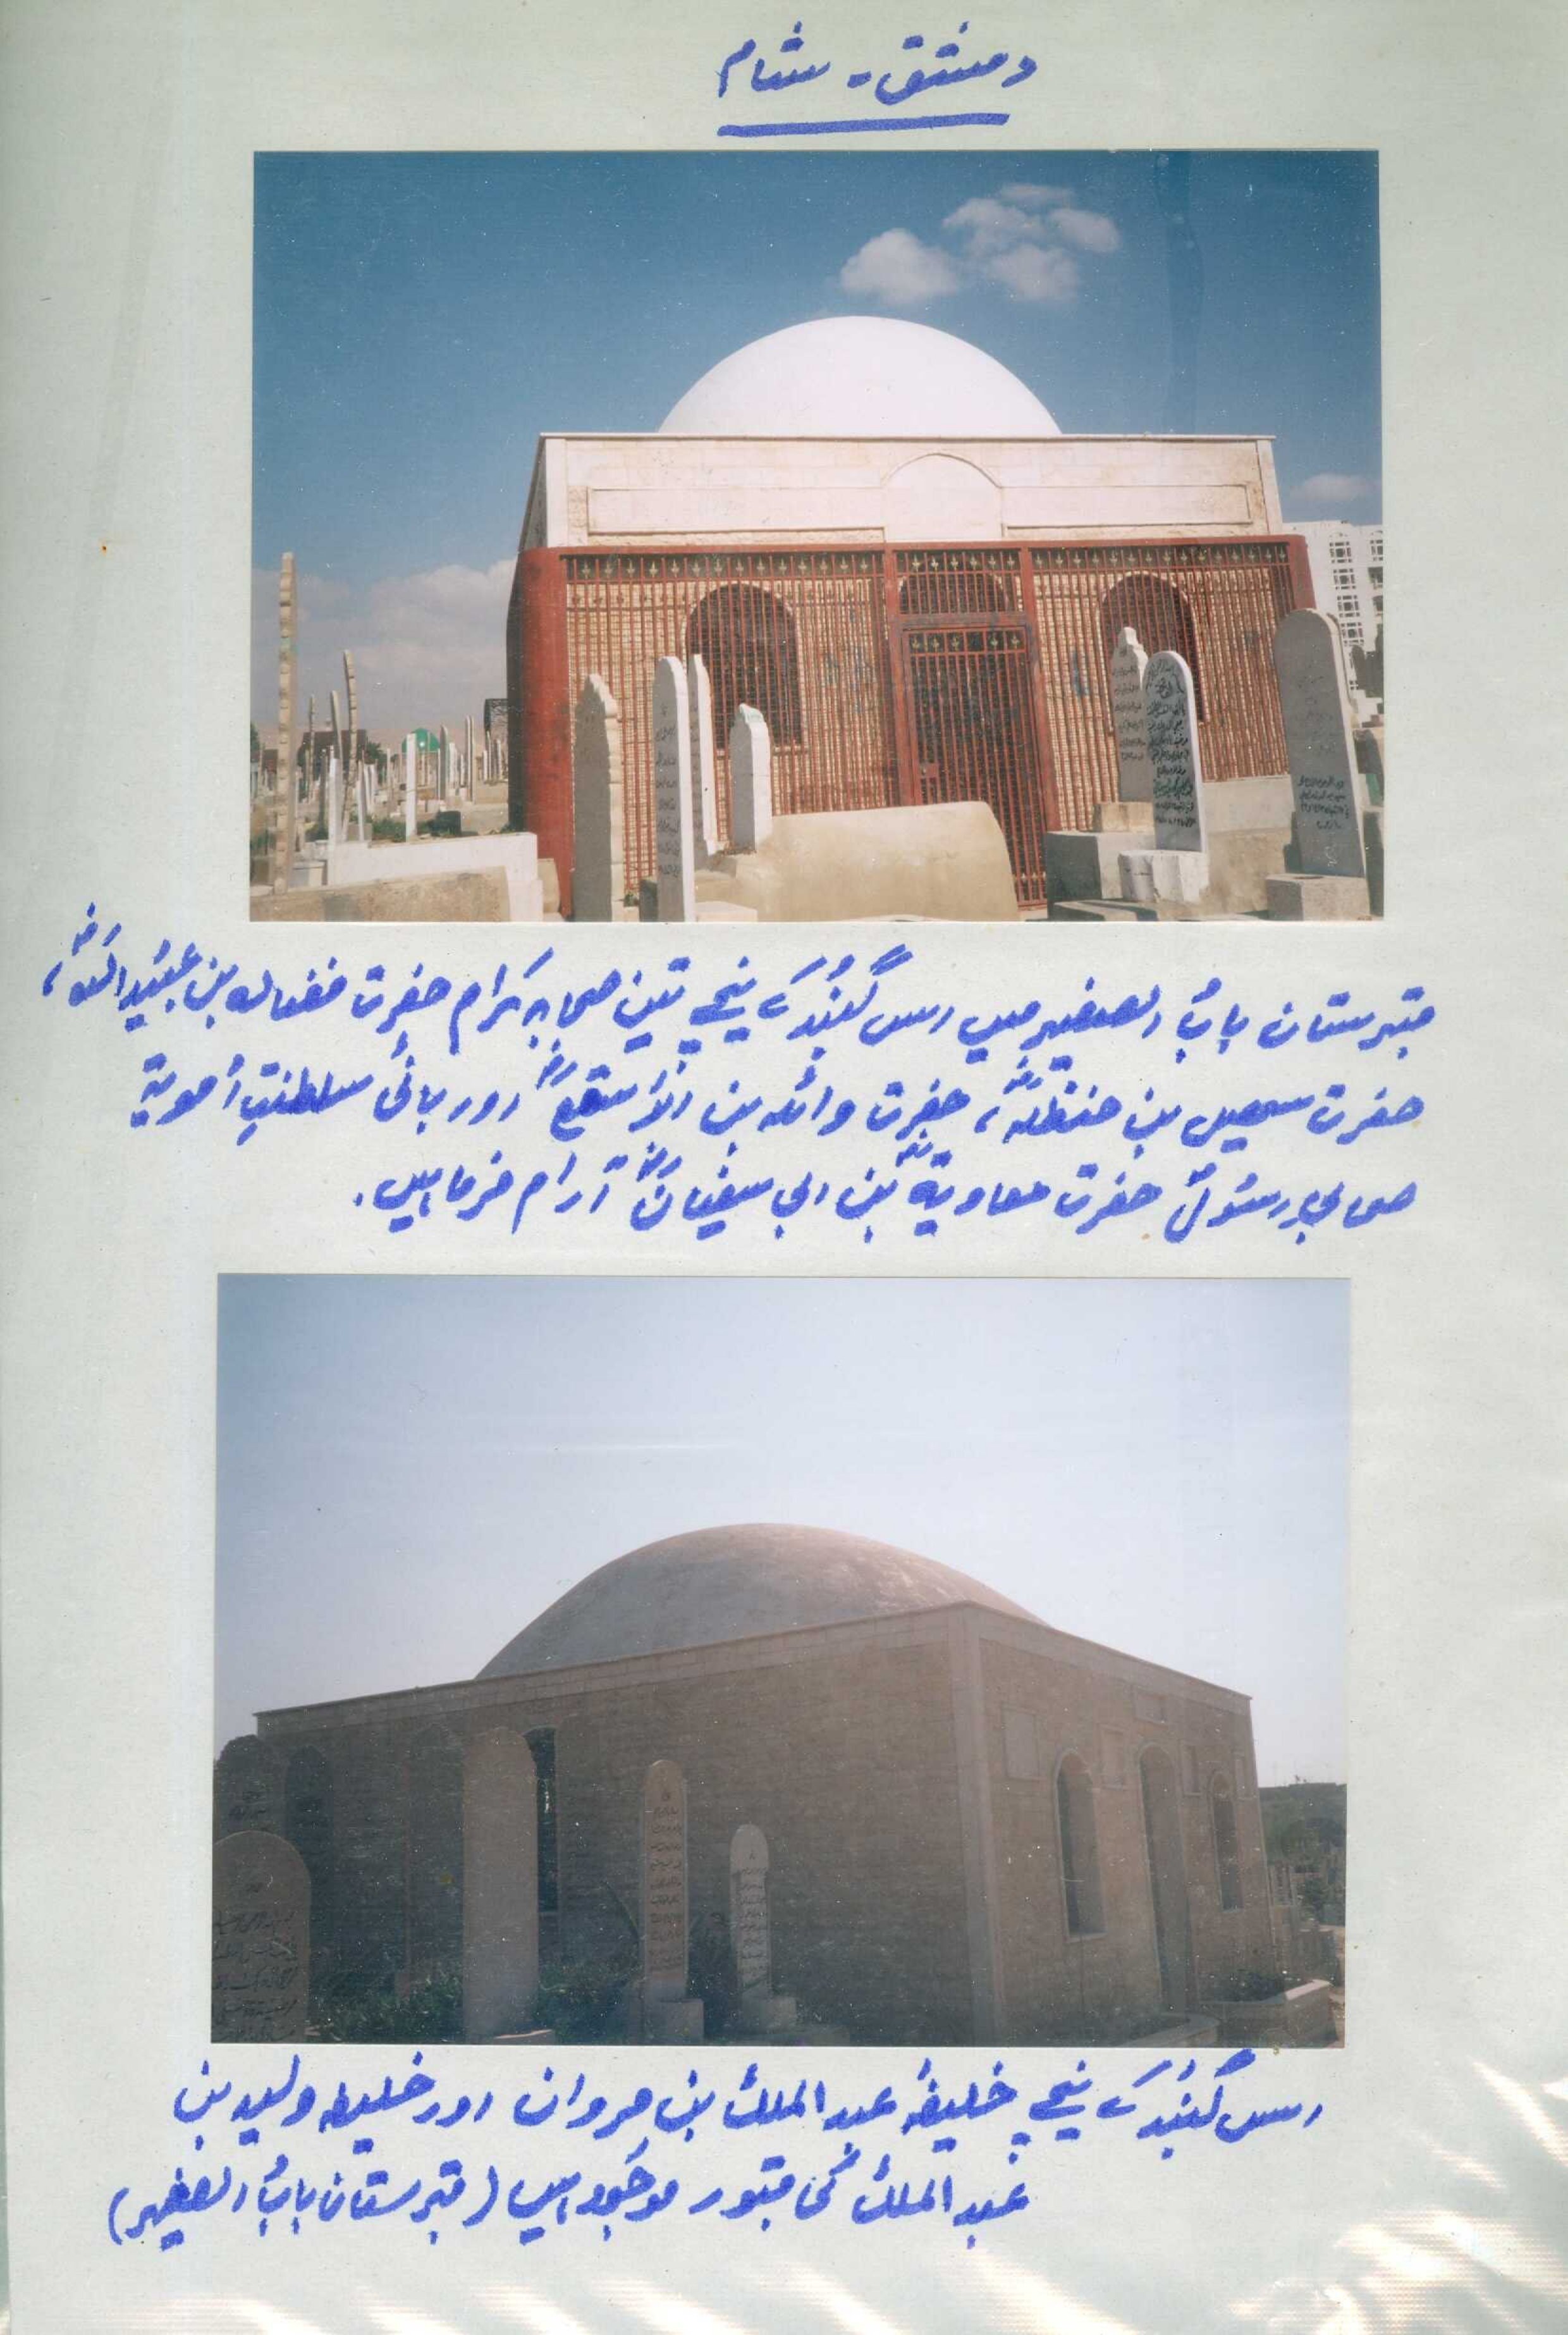 دمشق - شام
قبرستان بابُ الصغیر میں اس گنبُد کے نیچے تین صحابہ کرام حضرت فضالہ بن عبُید اللہؓ،
حضرت سہیل بن حنظلہؓ، حضرت واثلہ بن الاَسقعؓ اور بانیٔ سلطنتِ اُمویۃ
صحابیِ رسُولؐ حضرت معاویۃؓ بن ابی سفیانؓ آرام فرما ہیں.
اس گنبُد کے نیچے خلیفۂ عبد الملک بن مروان اور خلیفہ ولید بن
عبد الملک کی قبُور موجُود ہیں (قبرستان بابُ الصغیر)